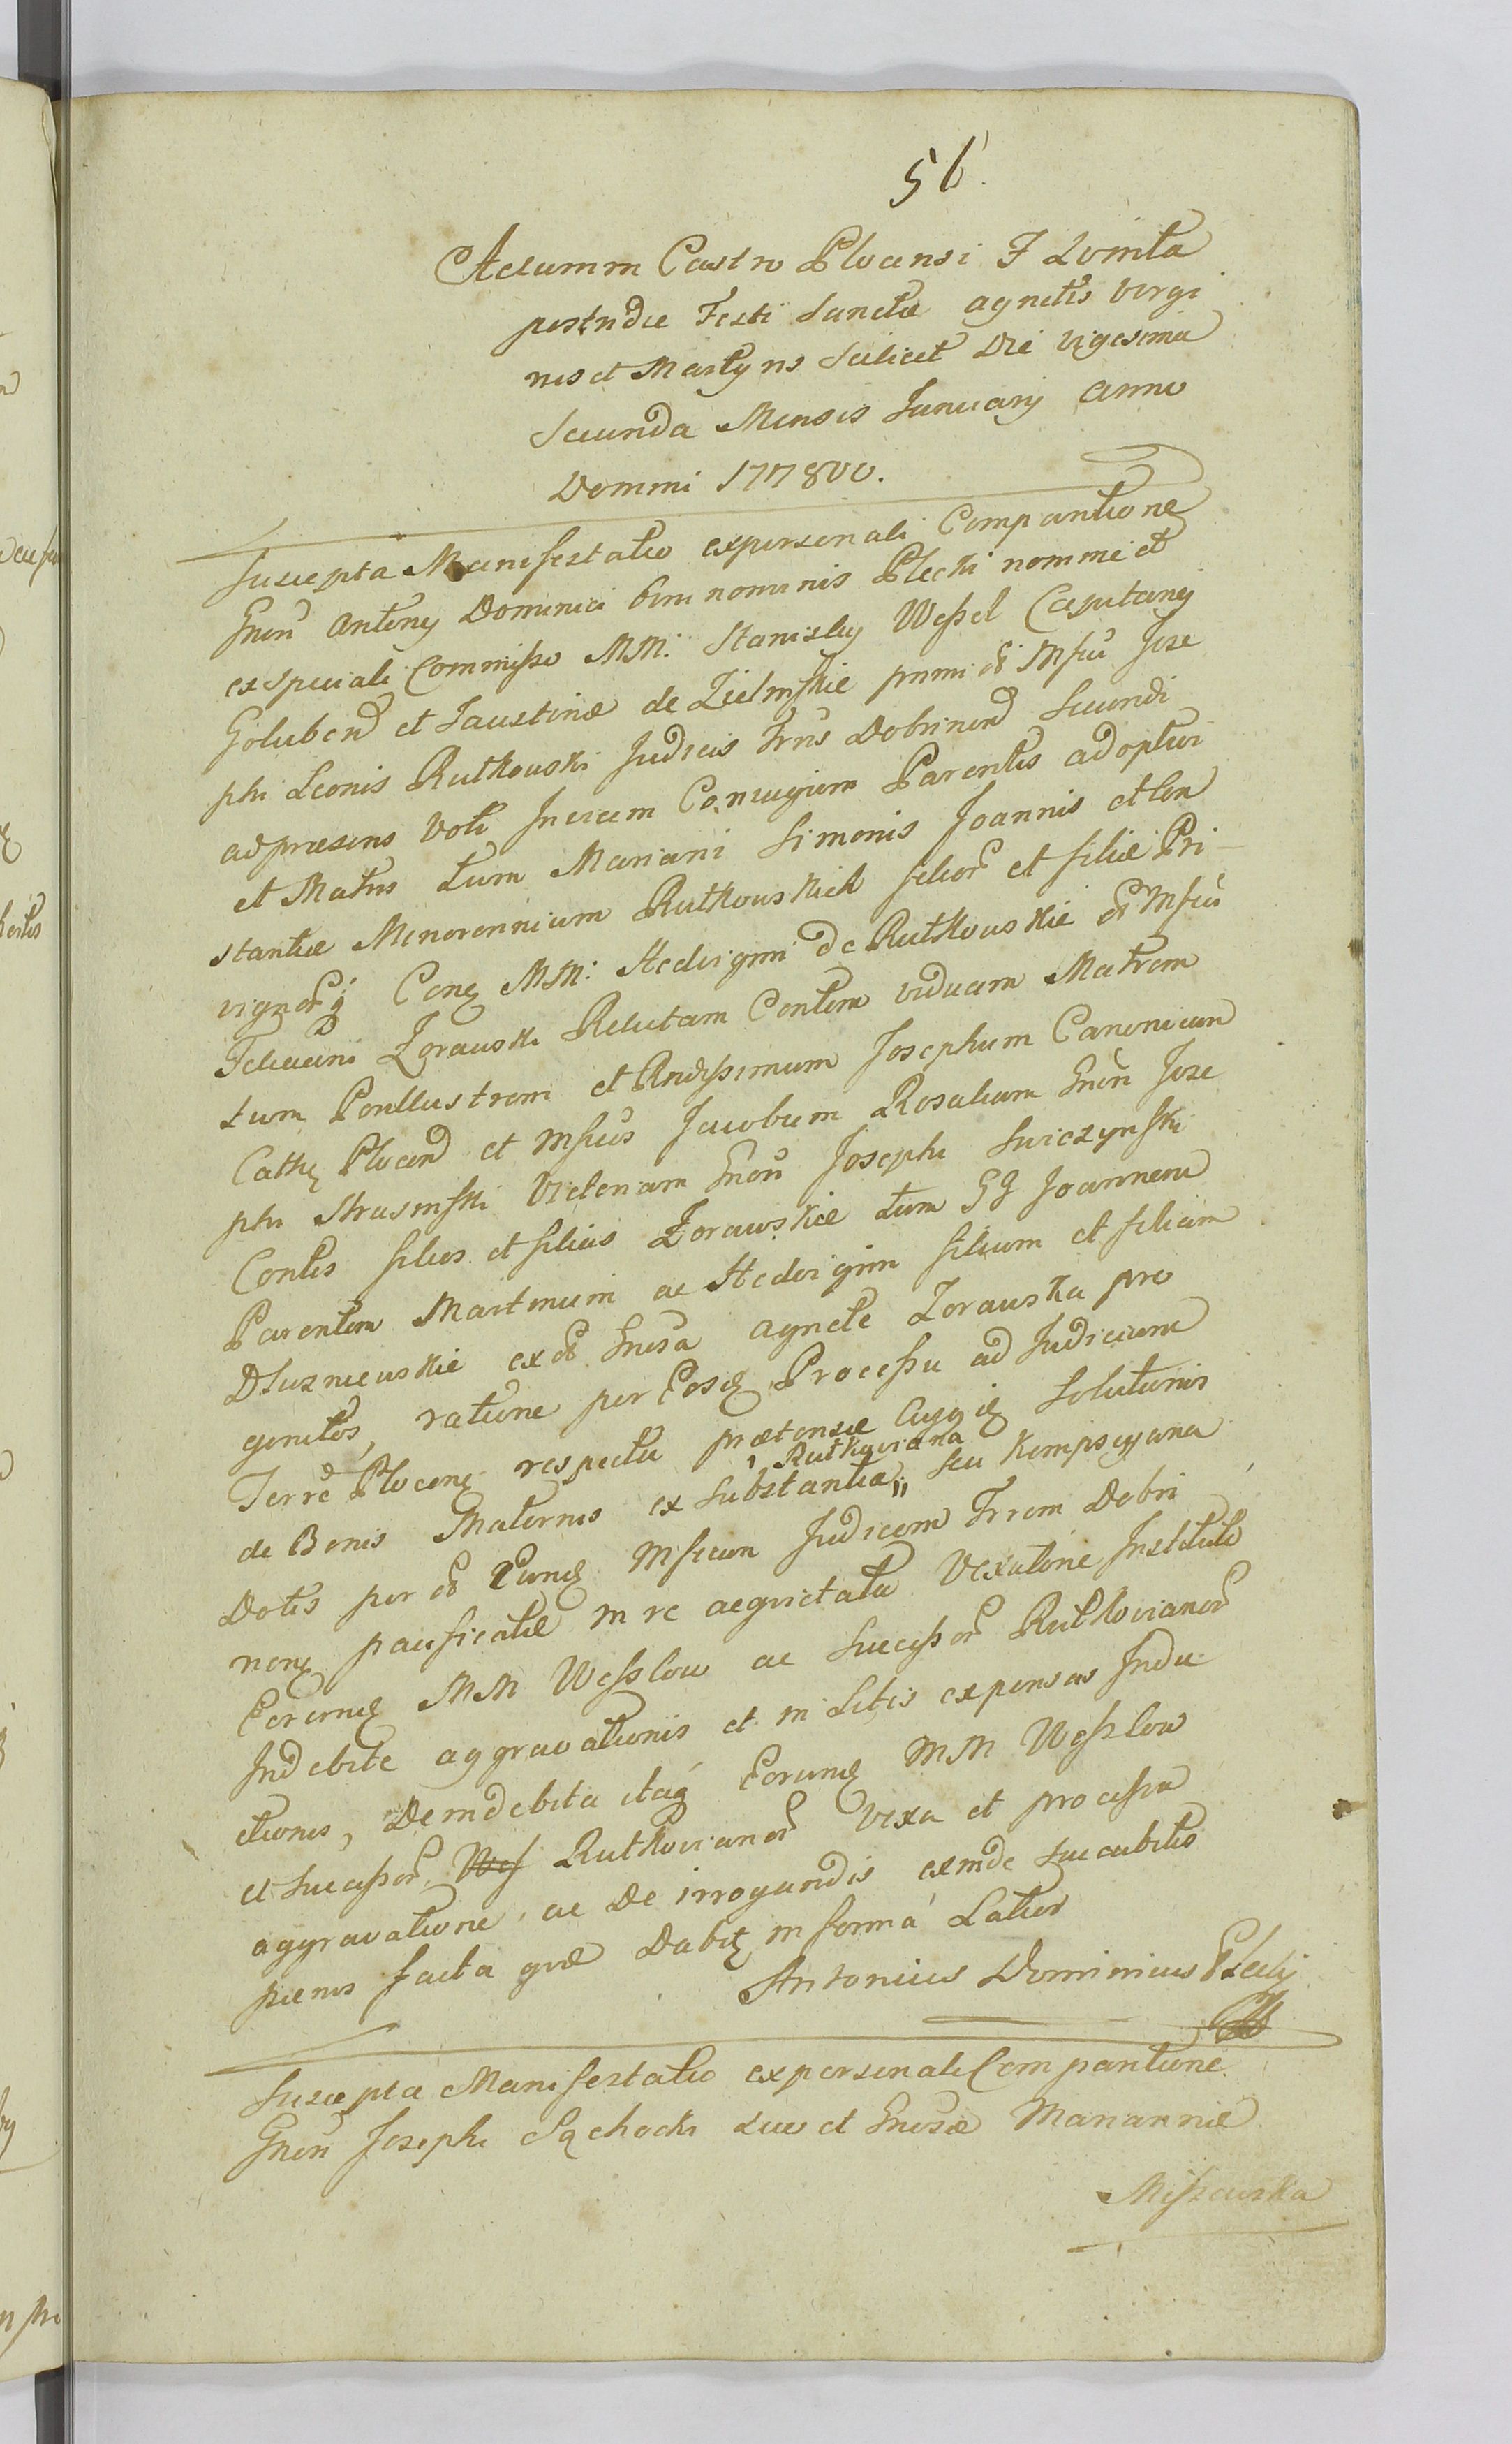 56.
Actum in Castro Plocensi F Quinta
postridie Festi Sanctæ Agnetis Virgi
nis et Martyris Scilicet Die vigesima
Secunda Mensis Januarij Anno
Domini 177800.
Suscepta Manifestatio ex personali Comparitione
Gnosi Antonij Dominici bini nominis Plecki nomine et
ex speciali Commisso MM. Stanislaj Wessel Capitanej
Golubens et Faustinæ de Zielinskie primi olim Mfici Jose
phi Leonis Rutkowski Judicis Trris Dobrinens Secundi
ad præsens Voti Invicem Conjugum Parentis adoptivi
et Matris tum Mariani Simonis Joannis et Con
stantiæ Minorennium Rutkowskich filior et filiæ Pri
vignorq Conq MM: Hedvigim de Rutkowskie olim Mfici
Feliciani Zorawski Relictam Contem viduam Matrem
tum Perillustrem et Rndissimum Josephum Canonicum
Cathlem Plocens et Mficos Jacobum Rosaliam Gnosi Jose
phi Krasinski Victoriam Gnosi Josephi Swiezynski
Contes filios et filias Zorawskie tum GG Joannem
Parentem Martinum ac Hedvigim filium et filiam
Dluzniewskie ex olim Gnosa Agnete Zorawska pro
genitos, ratione per Eosdem Processu ad Judicium
Terre Plocens respectu prætensæ Cujusdem Solutionis
de Bonis Maternis ex Substantia Rutkoviana seu Kempsciana
Dotis per olim Eundem Mficum Judicem Trrem Dobri
nens pacificatæ in re acquietata Vexatione Instituti
Eorundem MM Wesslow ac Successor Rutkovianor
Indebite aggravationis et in Litis expensas Indu
ctionis, De indebita itaq Eorundem MM Wesslow
et Successor Wes Rutkovianor vexa et processu
aggravatione, ac De irrogandis exinde succubitis
pienis facta quæ Dabitur in forma Latior
Antonius Dominicus Plecki
Suscepta Manifestatio ex personali Comparitione
Gnosi Josephi Sąchocki suo et Gnosæ Mariannæ
Miszewska